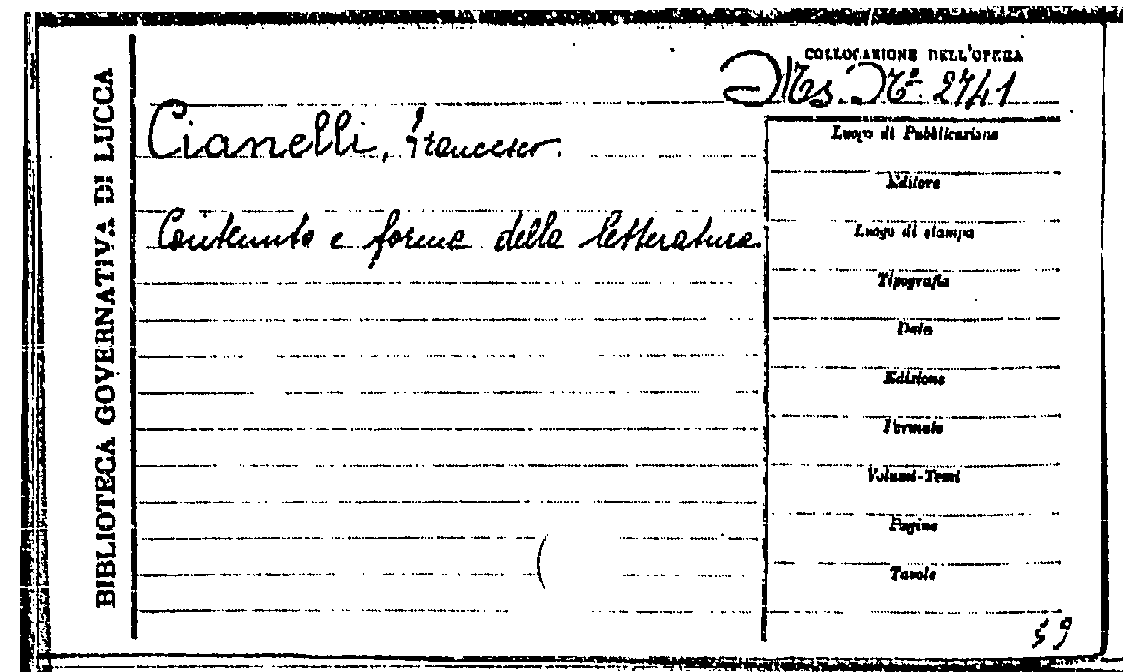 BIBLIOTECA GOVERNATIVA DI LUCCA
COLLOCAZIONE DELL'OPERA
Ms. N.º 2741
Cianelli, Francesco.
Contenuto e forma della letteratura.
Luogo di Pubblicazione
Editore
Luogo di stampa
Tipografia
Data
Edizione
Formato
Volumi-Tomi
Pagine
Tavole
59